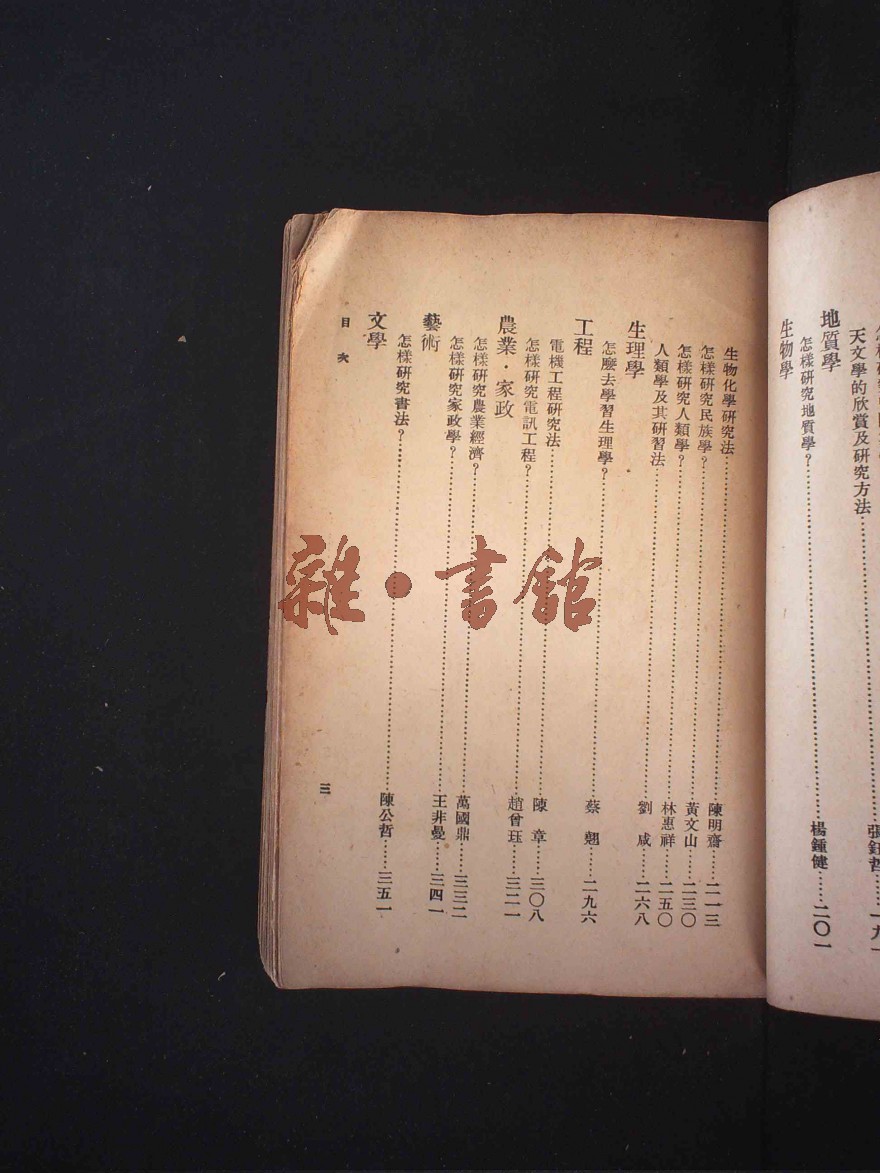 天文學的欣賞及研究方法……張鈺哲……一九一
地質學
怎樣研究地質學？……楊鍾健……二〇一
生物學
生物化學研究法……陳明齋……二一三
怎樣研究民族學？……黃文山……二三〇
怎樣研究人類學？……林惠祥……二五〇
人類學及其研習法……劉　咸……二六八
生理學
怎麼去學習生理學？……蔡　翹……二九六
工程
電機工程研究法……陳　章……三〇八
怎樣研究電訊工程？……趙曾珏……三二一
農業·家政
怎樣研究農業經濟？……萬國鼎……三三二
怎樣研究家政學？……王非曼……三四一
藝術
怎樣研究書法？……陳公哲……三五一
文學
目次
三
雜·書館